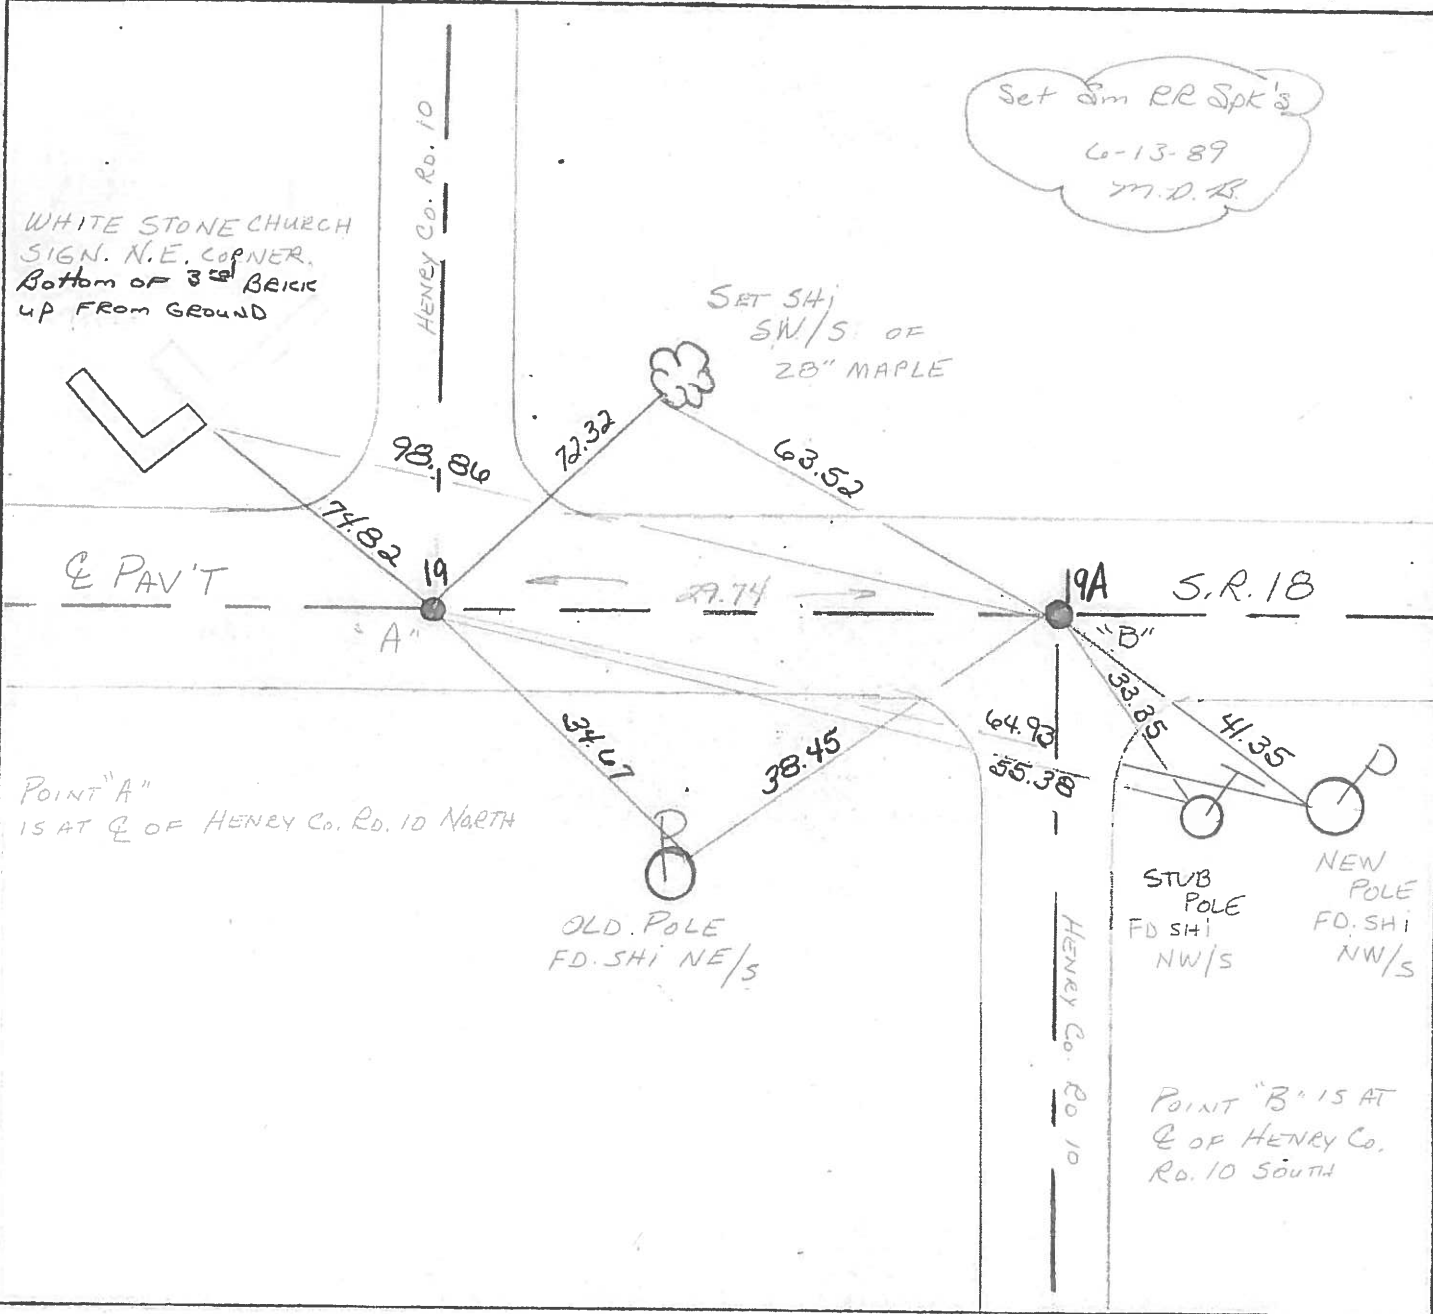 Set Sm RR Spk's
6-13-89
M.D.B.
HENRY CO. RD. 10
WHITE STONE CHURCH
SIGN. N.E. CORNER.
Bottom OF 3rd BRICK
UP FROM GROUND
SET SHi
SW/S OF
28" MAPLE
98.86
72.32
63.52
74.82
℄ PAV'T
19
29.74
19A
S.R. 18
"A"
"B"
34.67
38.45
64.93
55.38
33.85
41.35
POINT "A"
IS AT ℄ OF HENRY CO. RD. 10 NORTH
OLD. POLE
FD. SHi NE/S
STUB
POLE
FD SHi
NW/S
NEW
POLE
FD. SHi
NW/S
HENRY CO. RD 10
POINT "B" IS AT
℄ OF HENRY CO.
RD. 10 SOUTH